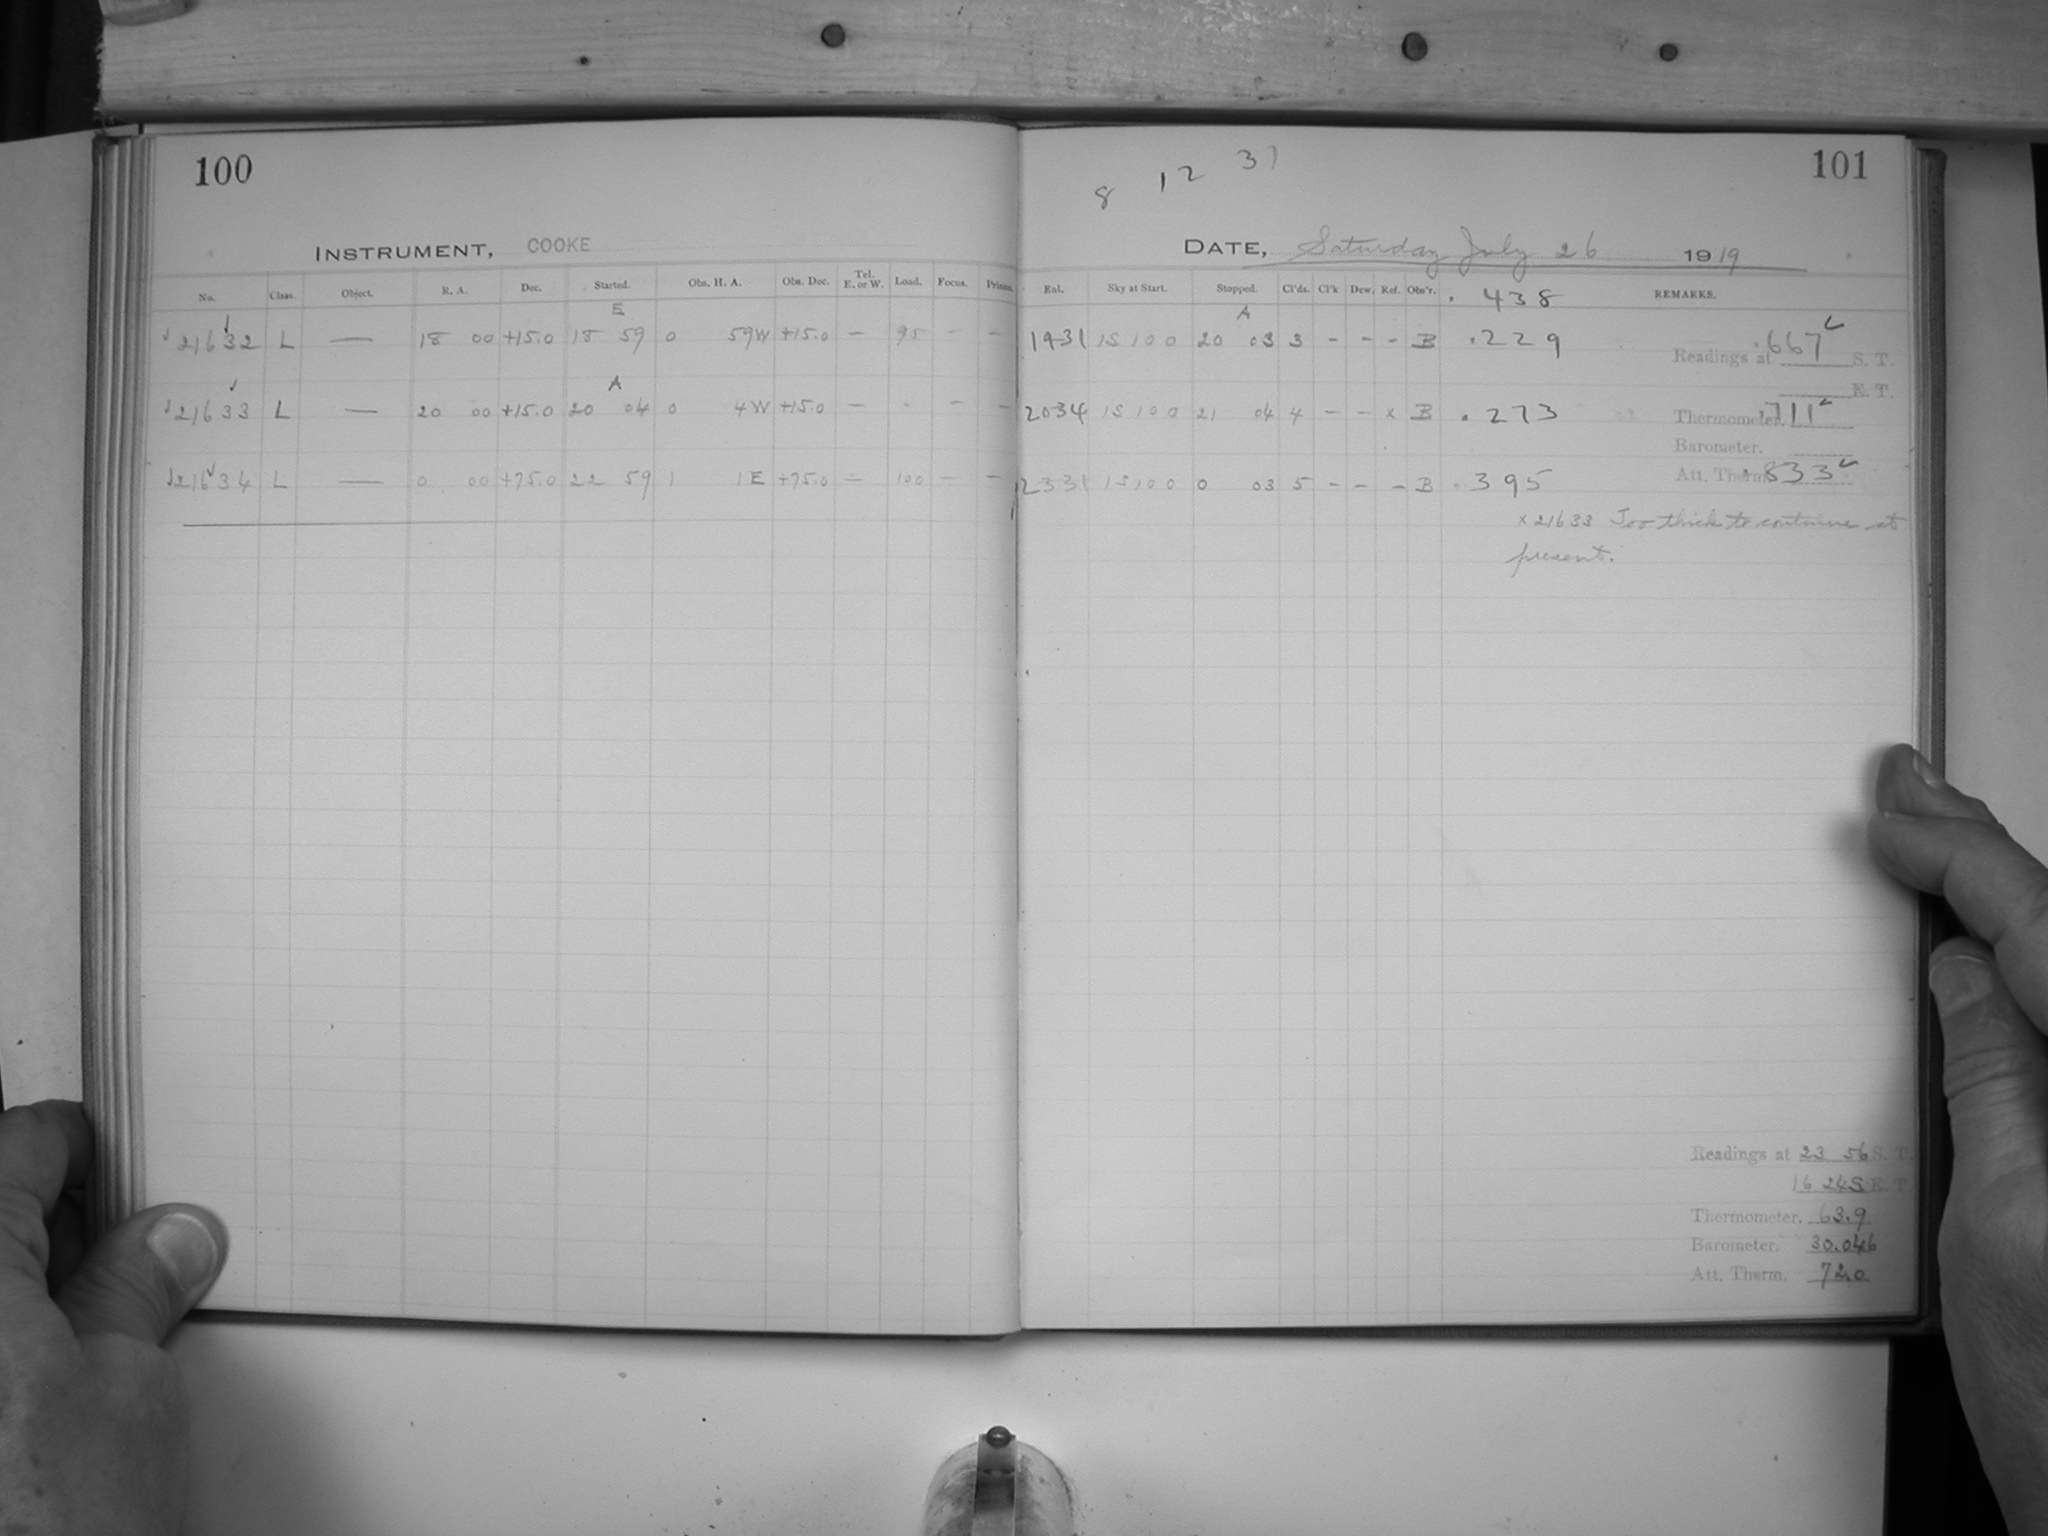 100
INSTRUMENT, COOKE
No. Class. Object. R. A. Dec. Started. Obs. H. A. Obs. Dec. Tel. E. or W. Load. Focus.
E
21632 L — 18 00 +15.0 18 59 0 59W +15.0 – 95 – –
A
21633 L — 20 00 +15.0 20 04 0 4W +15.0 – - – –
21634 L — 0 00 +75.0 22 59 1 1E +75.0 – 100 – –
101
8 12 37
DATE, Saturday July 26 1919
Eal. Sky at Start. Stopped. Cl'ds. Cl'k Dew. Ref. Obs'r. . 438 REMARKS.
A
1931 1S 100 20 03 3 – – – B .229 .667
Readings at S. T.
E. T.
2034 1S 100 21 04 4 – – x B .273 Thermometer. .711
Barometer.
2331 1S100 0 03 5 – – – B .395 Att. Therm. .833
x 21633 Too thick to continue at
present.
Readings at 23 56 S. T.
16 24S E. T.
Thermometer. 63.9
Barometer. 30.046
Att. Therm. 72.0